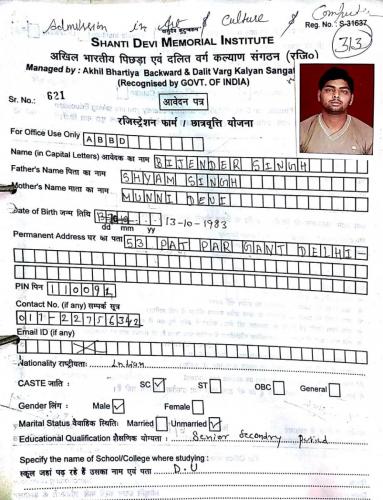 Admission in Art & Culture & Computer
SHANTI DEVI MEMORIAL INSTITUTE
Reg. No.: S-31637
313
अखिल भारतीय पिछड़ा एवं दलित वर्ग कल्याण संगठन (रजि०)
Managed by : Akhil Bhartiya Backward & Dalit Varg Kalyan Sangat
(Recognised by GOVT. OF INDIA)
Sr. No.: 621
आवेदन पत्र
रजिस्ट्रेशन फार्म / छात्रवृत्ति योजना
For Office Use Only A B B D
Name (in Capital Letters) आवेदक का नाम BIJENDER SINGH
Father's Name पिता का नाम SHYAM SINGH
Mother's Name माता का नाम MUNNI DEVI
Date of Birth जन्म तिथि 13-10-1983
dd mm yy
Permanent Address घर का पता 53 PAT PAR GANT DELHI-
PIN पिन 110092
Contact No. (if any) सम्पर्क सूत्र
017-22756342
Email ID (if any)
Nationality राष्ट्रीयताः Indian
CASTE जाति : SC ✓ ST OBC General
Gender लिंग : Male ✓ Female
Marital Status वैवाहिक स्थितिः Married Unmarried ✓
Educational Qualification शैक्षणिक योग्यता : Senior Secondry
Specify the name of School/College where studying :
स्कूल जहां पढ़ रहे हैं उसका नाम एवं पता D.U